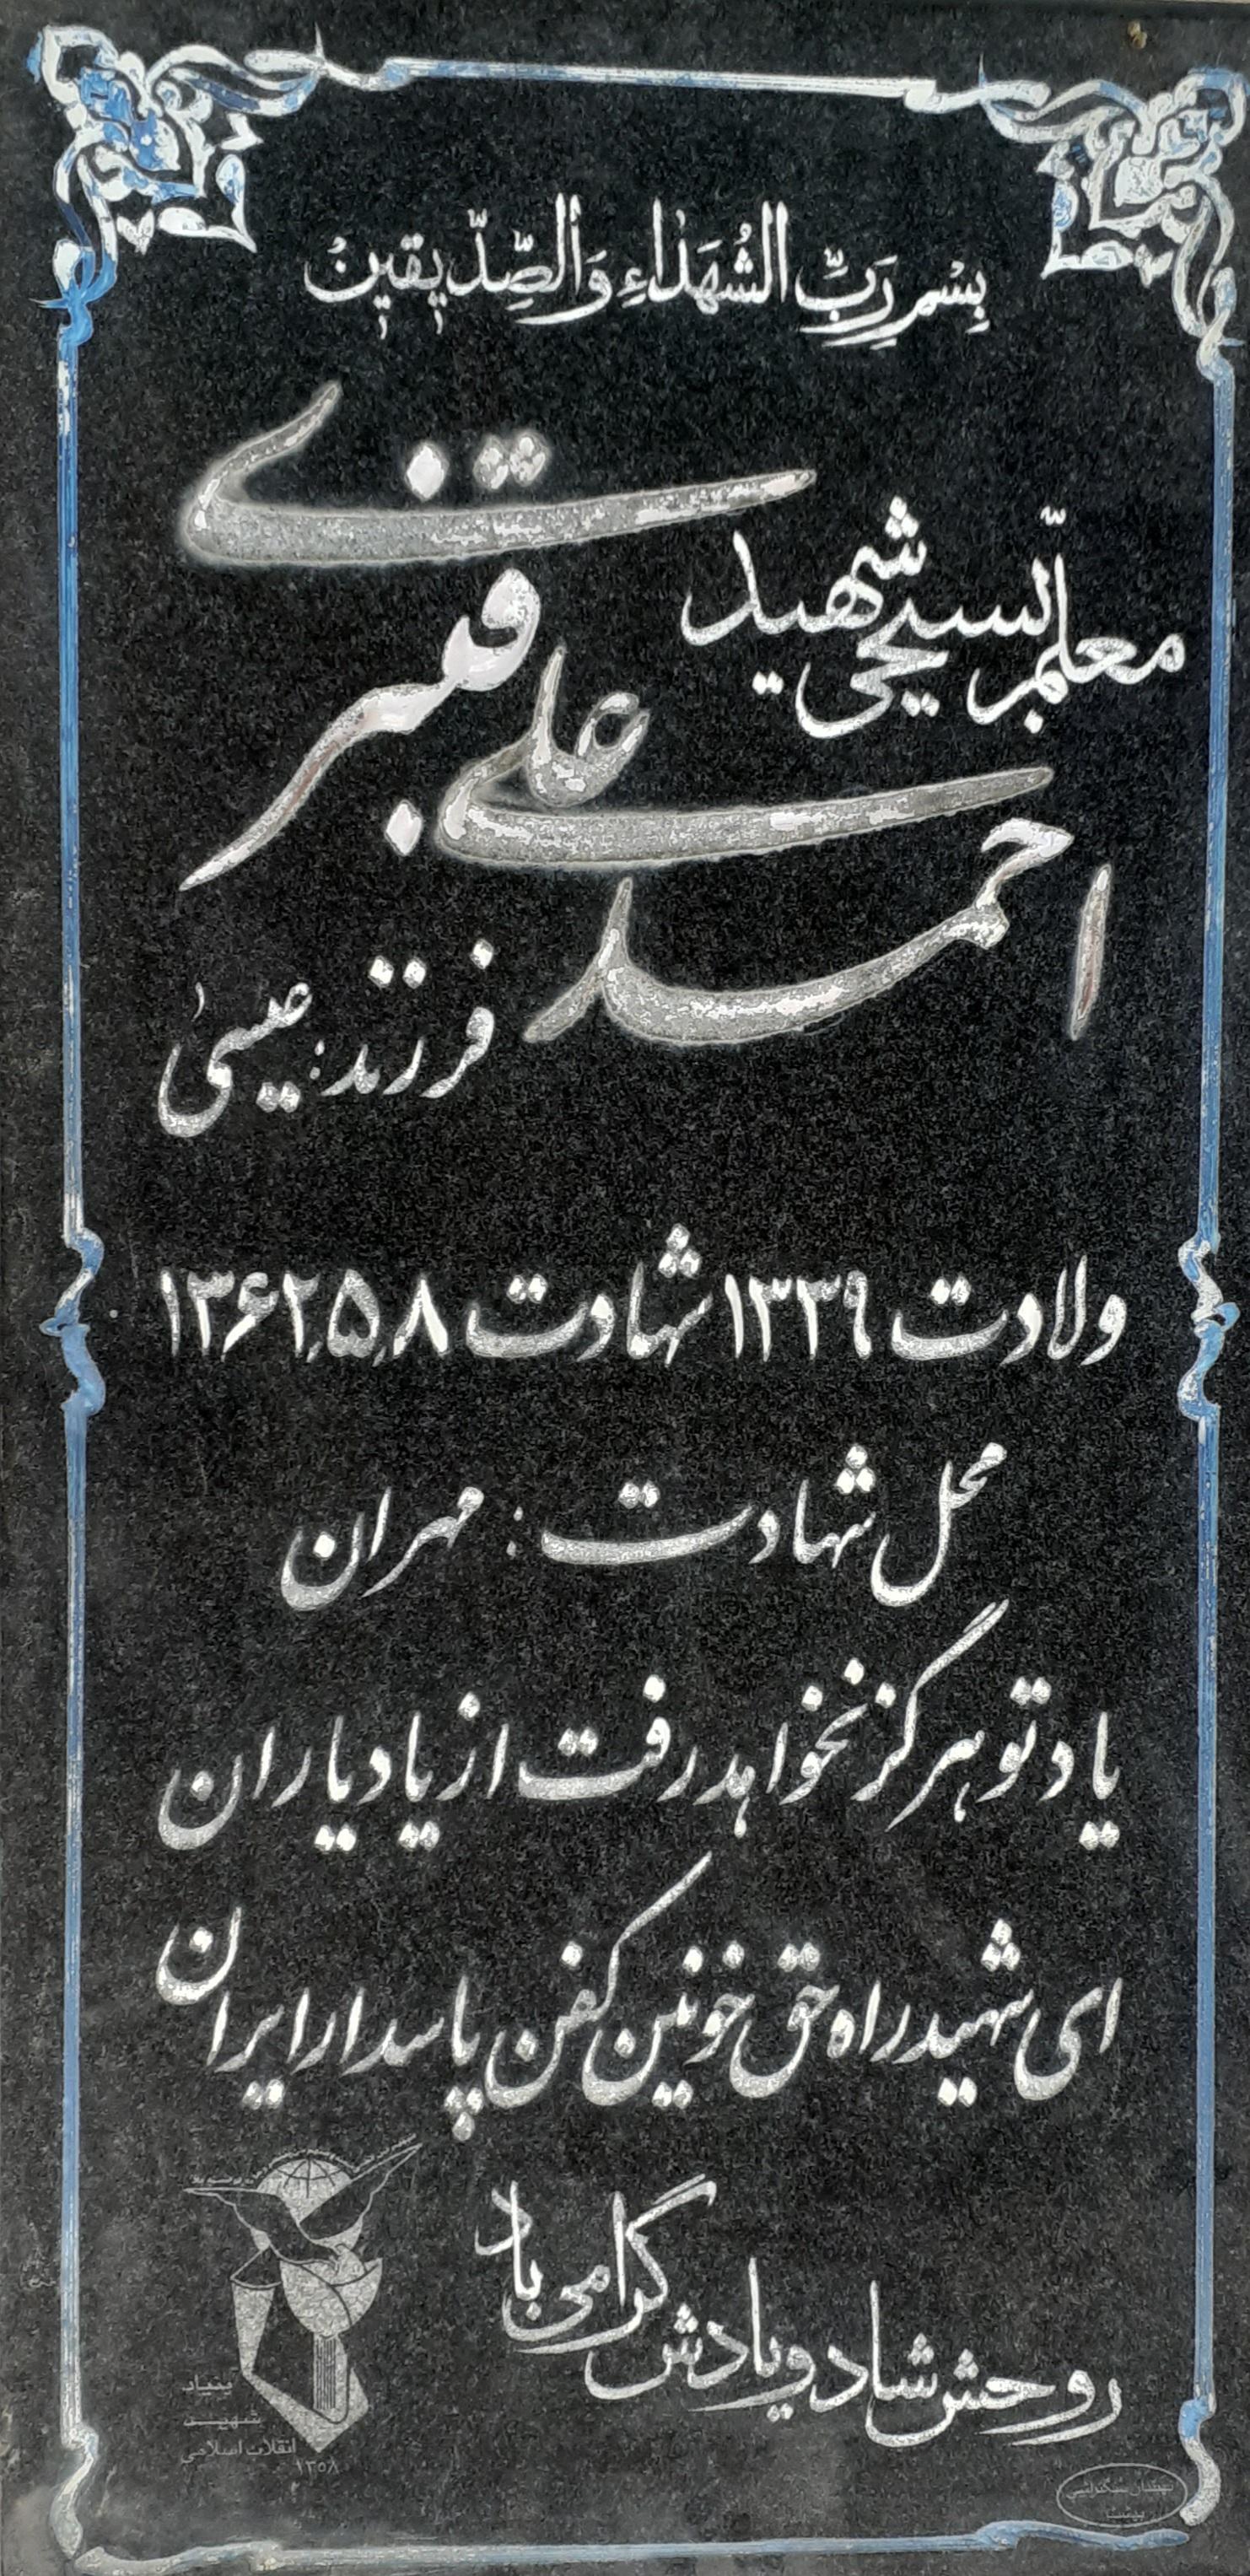 بِسْمِ رَبِّ الشُّهَدٰاءِ وَالصِّدّیٖقیٖنْ
معلّم بسیجی شهید
احمد علی قنبری
فرزند : عیسیٰ
ولادت ۱۳۳۹ شهادت ۱۳۶۲٫۵٫۸
محل شهادت : مهران
یاد تو هرگز نخواهد رفت از یاد یاران
ای شهید راه حق خونین کفن پاسدار ایران
روحش شاد و یادش گرامی باد
بنیاد
شهید
انقلاب اسلامی
۱۳۵۸